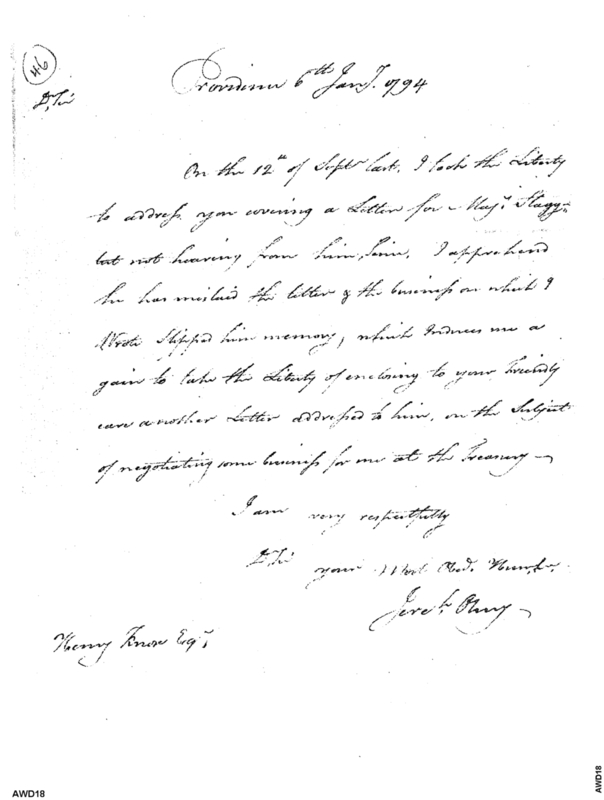 46
Providence 6th Jany. 1794
D. Sir
On the 12th of Septr last, I took the Liberty
to address you covering a Letter for Majr. Stagg
but not hearing from him, Since, I apprehend
he has mislaid the letter & the business on which I
Wrote Slipped him memory, which Induces me a
gain to take the Liberty of enclosing to your Friendly
care another Letter addressed to him, on the Subject
of negotiating some business for me at the Treasury
I am very respectfully
D. Sir
your Most Obd. Hum.
Jereh. Olney
Henry Knox Esqr.
AWD18
AWD18